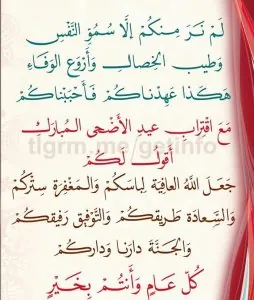 لَمْ نَرَ مِنكُمْ إِلَّا سُمُوَّ النَّفْسِ
وَطِيبَ الْخِصَالِ وَأَرْوَعَ الْوَفَاءِ
هَكَذَا عَهِدْنَاكُمْ فَأَحْبَبْنَاكُمْ
مَعَ اقْتِرَابِ عِيدِ الْأَضْحَى الْمُبَارَكِ
أَقُولُ لَكُمْ
tlgrm.me/getinfo
جَعَلَ اللهُ الْعَافِيَةَ لِبَاسَكُمْ وَالْمَغْفِرَةَ سِتْرَكُمْ
وَالسَّعَادَةَ طَرِيقَكُمْ وَالتَّوْفِيقَ رَفِيقَكُمْ
وَالْجَنَّةَ دَارَنَا وَدَارَكُمْ
كُلُّ عَامٍ وَأَنْتُمْ بِخَيْرٍ